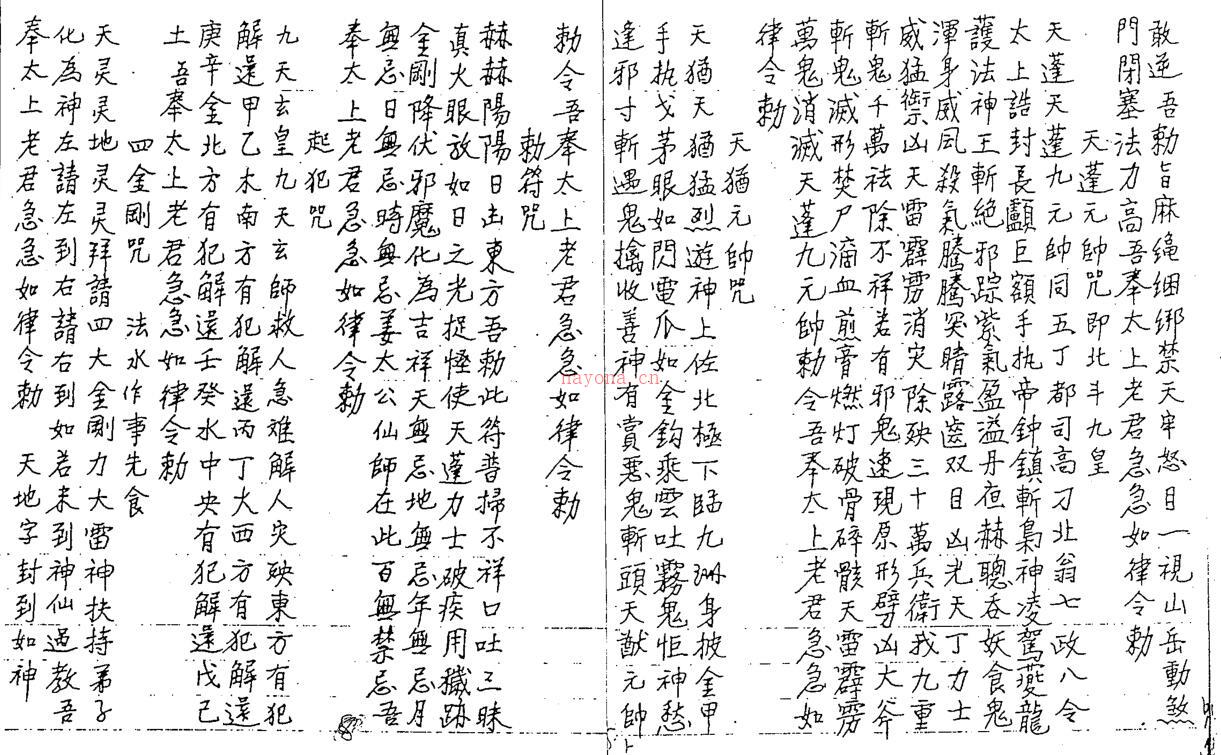 敢逆吾勅旨麻绳綑绑禁天牢怒目一視山岳動煞
門閉塞法力高吾奉太上老君急急如律令勅
天蓬元帥咒即北斗九皇
天蓬天蓬九元帥同五丁都司高刁北翁七政八令
太上誥封長顱巨額手执帝鈡鎮斬梟神凌駕夔龍
護法神王斬絕邪踪紫氣盈溢丹夜赫聰吞妖食鬼
渾身威风殺氣騰騰突睛露齒双目凶光天丁力士
威猛禦凶天雷霹雳消灾除殃三十萬兵衛我九重
斬鬼千萬祛除不祥若有邪鬼速現原形劈凶大斧
斬鬼滅形焚尸滴血煎膏燃灯破骨碎骸天雷霹雳
萬鬼消滅天蓬九元帥勅令吾奉太上老君急急如
律令勅
天猶元帥咒
天猶天猶猛烈遊神上佐北極下臨九洲身披金甲
手执戈茅眼如閃電爪如金鈎乘雲吐霧鬼怄神愁
逢邪寸斬遇鬼擒收善神有賞惡鬼斬頭天猷元帥
勅令吾奉太上老君急急如律令勅
勅符咒
赫赫陽陽日出東方吾勅此符普掃不祥口吐三昧
真火眼放如日之光捉怪使天蓬力士破疾用穢跡
金剛降伏邪魔化為吉祥天無忌地無忌年無忌月
無忌日無忌時無忌姜太公仙師在此百無禁忌吾
奉太上老君急急如律令勅
起犯咒
九天玄皇九天玄師救人急难解人灾殃東方有犯
解還甲乙木南方有犯解還丙丁火西方有犯解還
庚辛金北方有犯解還壬癸水中央有犯解還戊己
土吾奉太上老君急急如律令勅
四金剛咒 法水作事先食
天灵灵地灵灵拜請四大金剛力大雷神扶持弟子
化為神左請左到右請右到如若未到神仙過教吾
奉太上老君急急如律令勅 天地字封到如神
nayona.cn